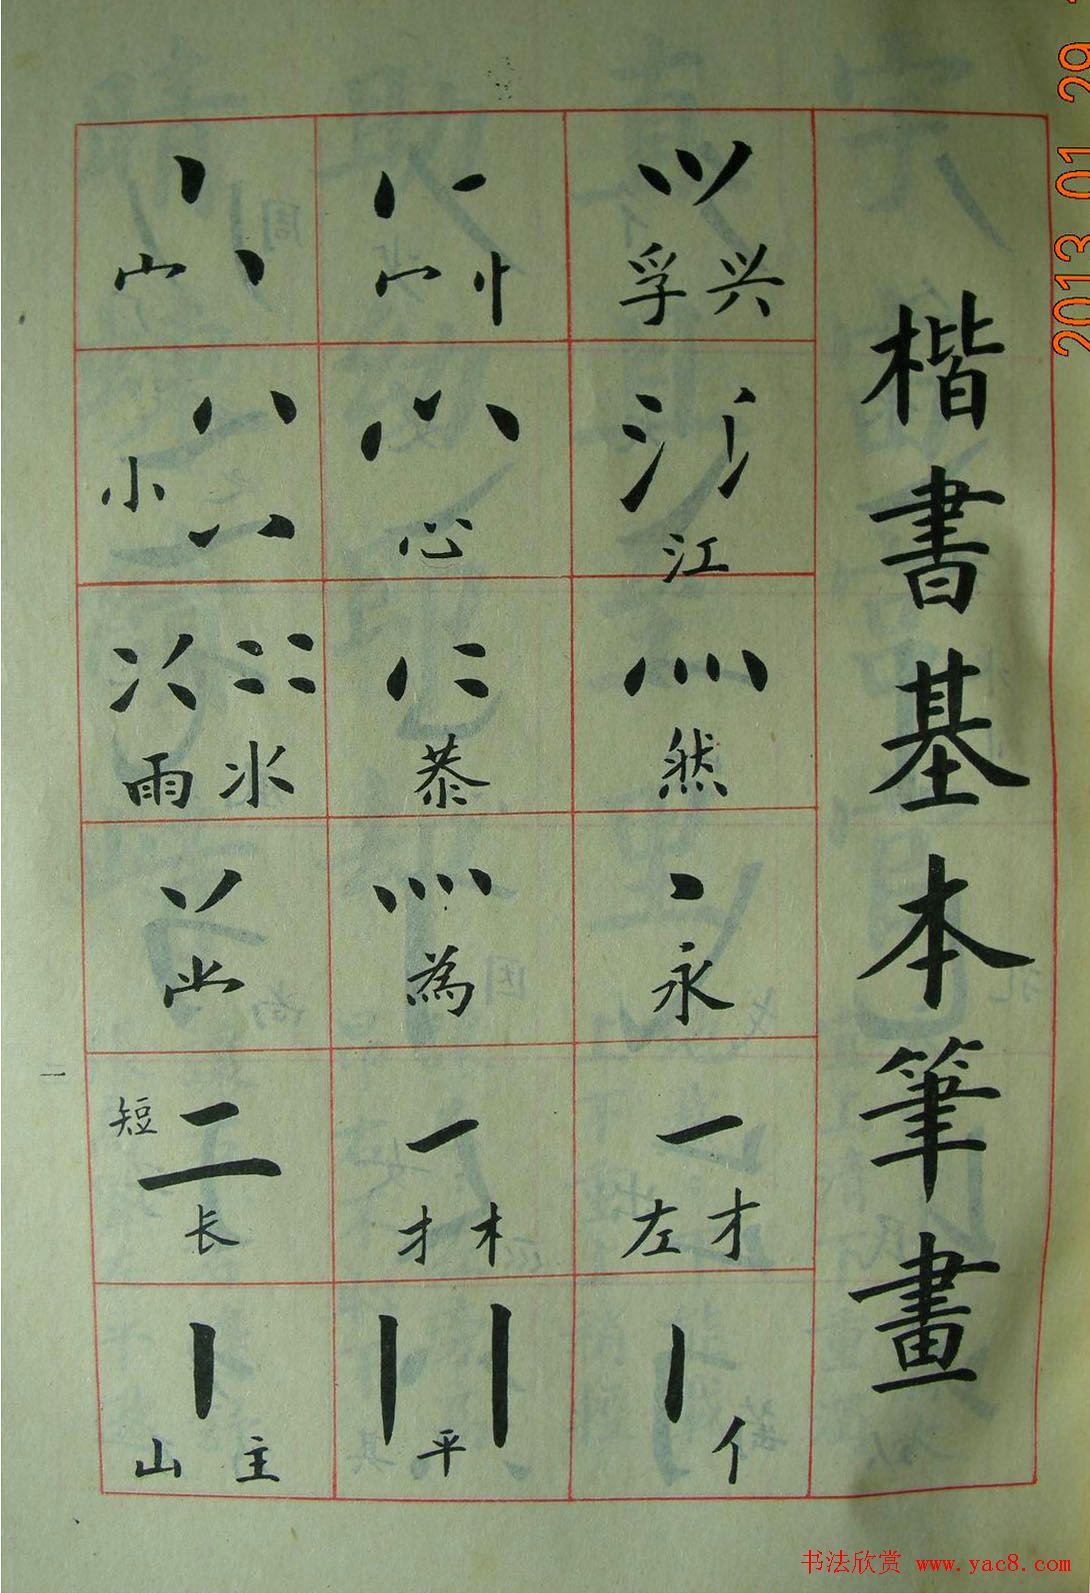 楷書基本筆畫
孚 兴
江
然
永
左 才
亻
宀 忄
心
恭
為
扌 木
平
宀
小
雨 水
短
长
山 主
一
2013 01 29
书法欣赏 www.yac8.com